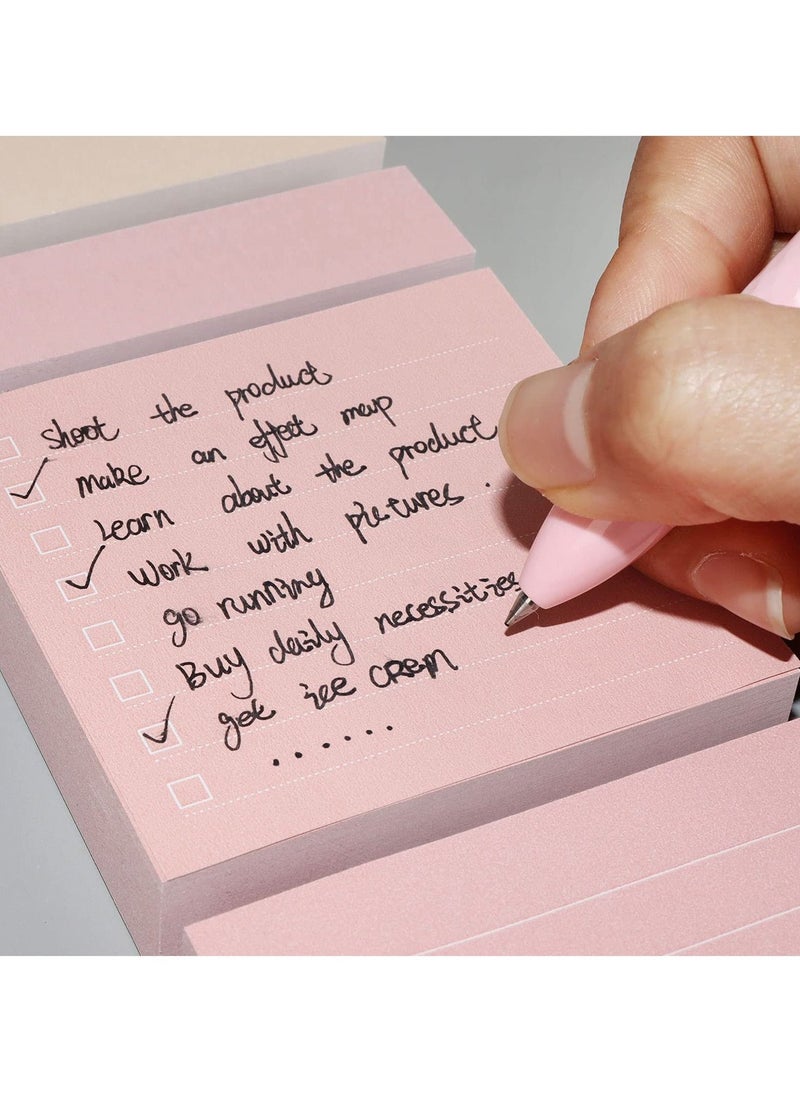 shoot the product
make an effect map
Learn about the product
work with pictures.
go running
Buy daily necessities
get ice cream
......